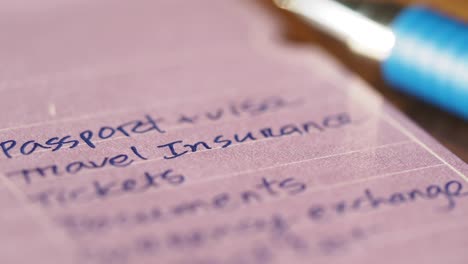 Passport + visa
Travel Insurance
Tickets
Documents
exchange